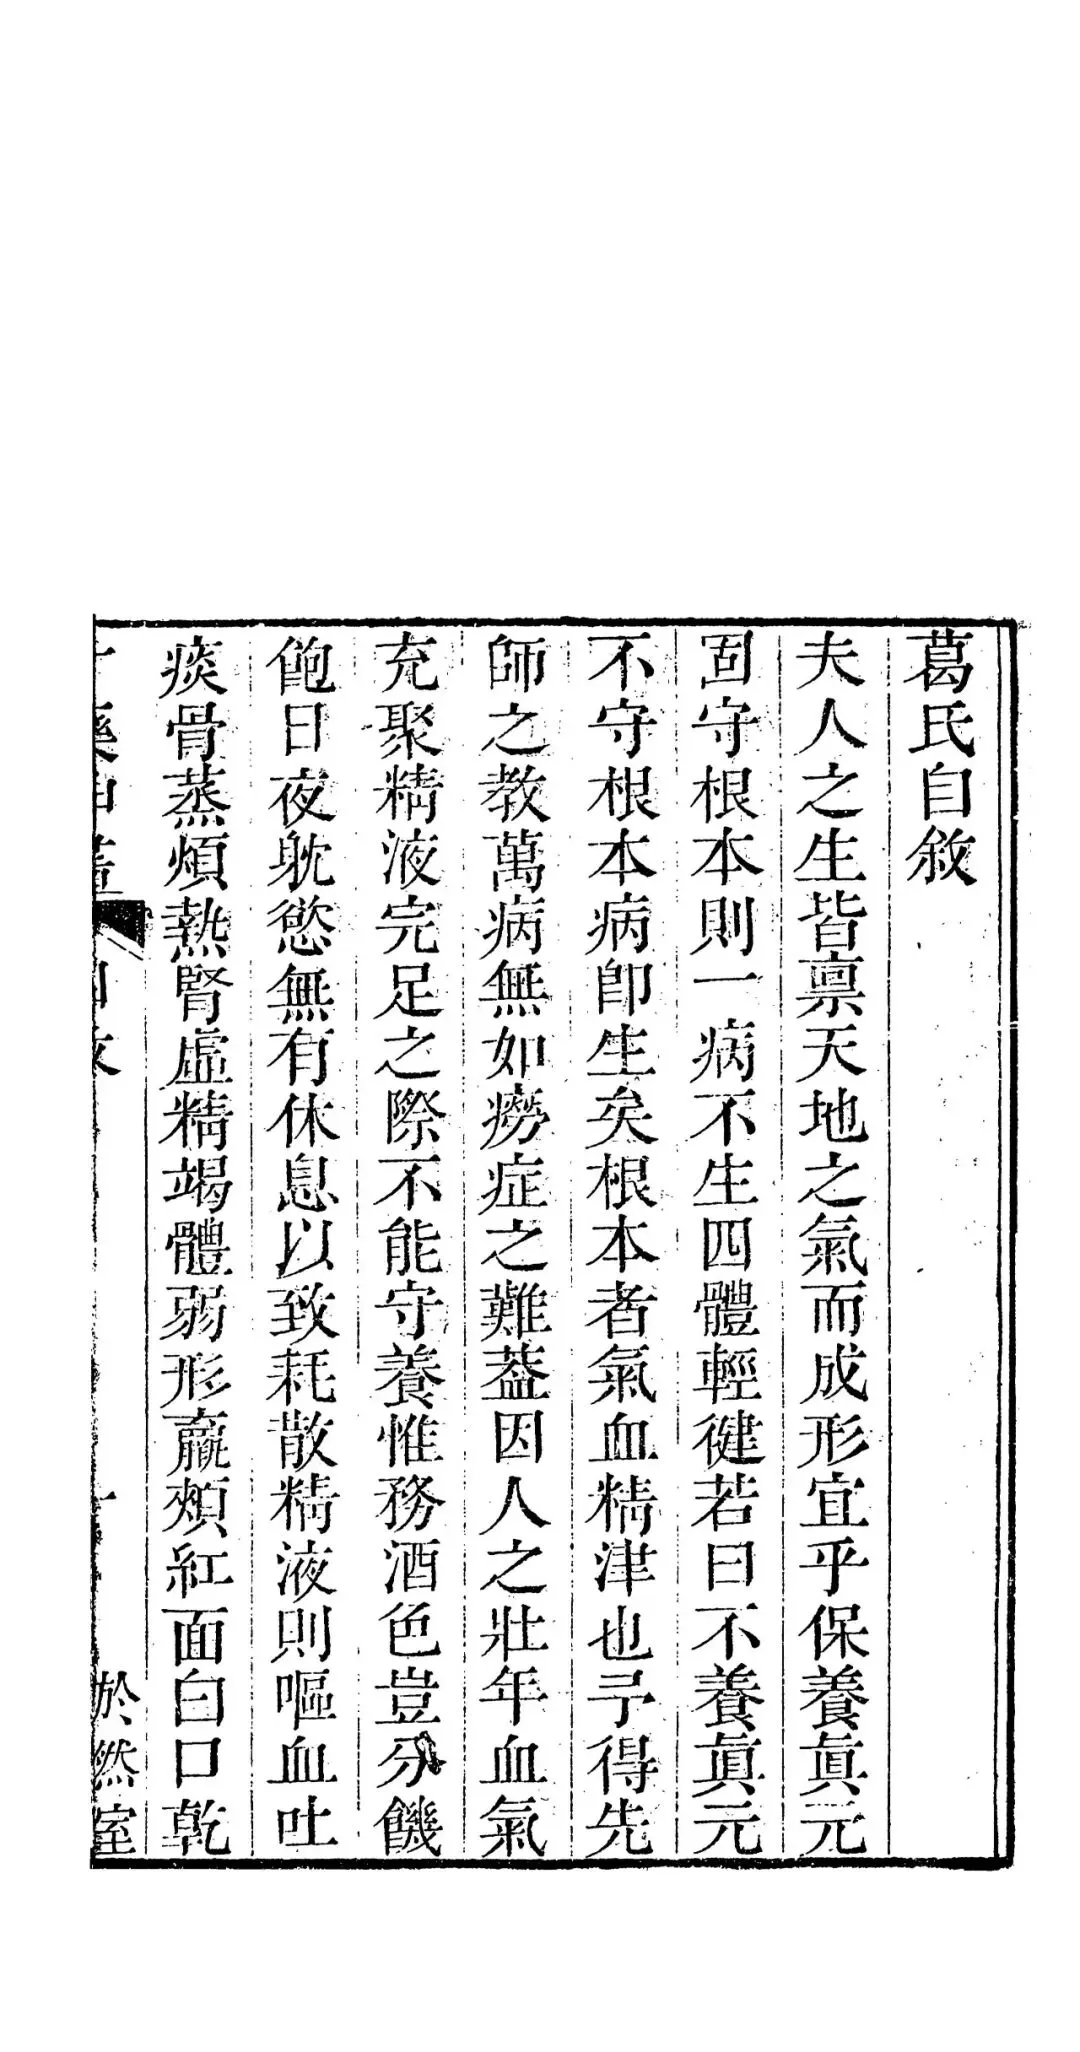 葛氏自敘
夫人之生皆禀天地之氣而成形宜乎保養眞元
固守根本則一病不生四體輕徤若曰不養眞元
不守根本病卽生矣根本者氣血精津也予得先
師之教萬病無如癆症之難葢因人之壯年血氣
充聚精液完足之際不能守養惟務酒色豈分饑
飽日夜躭慾無有休息以致耗散精液則嘔血吐
痰骨蒸煩熱腎虛精竭體弱形羸頰紅面白口乾
於然室